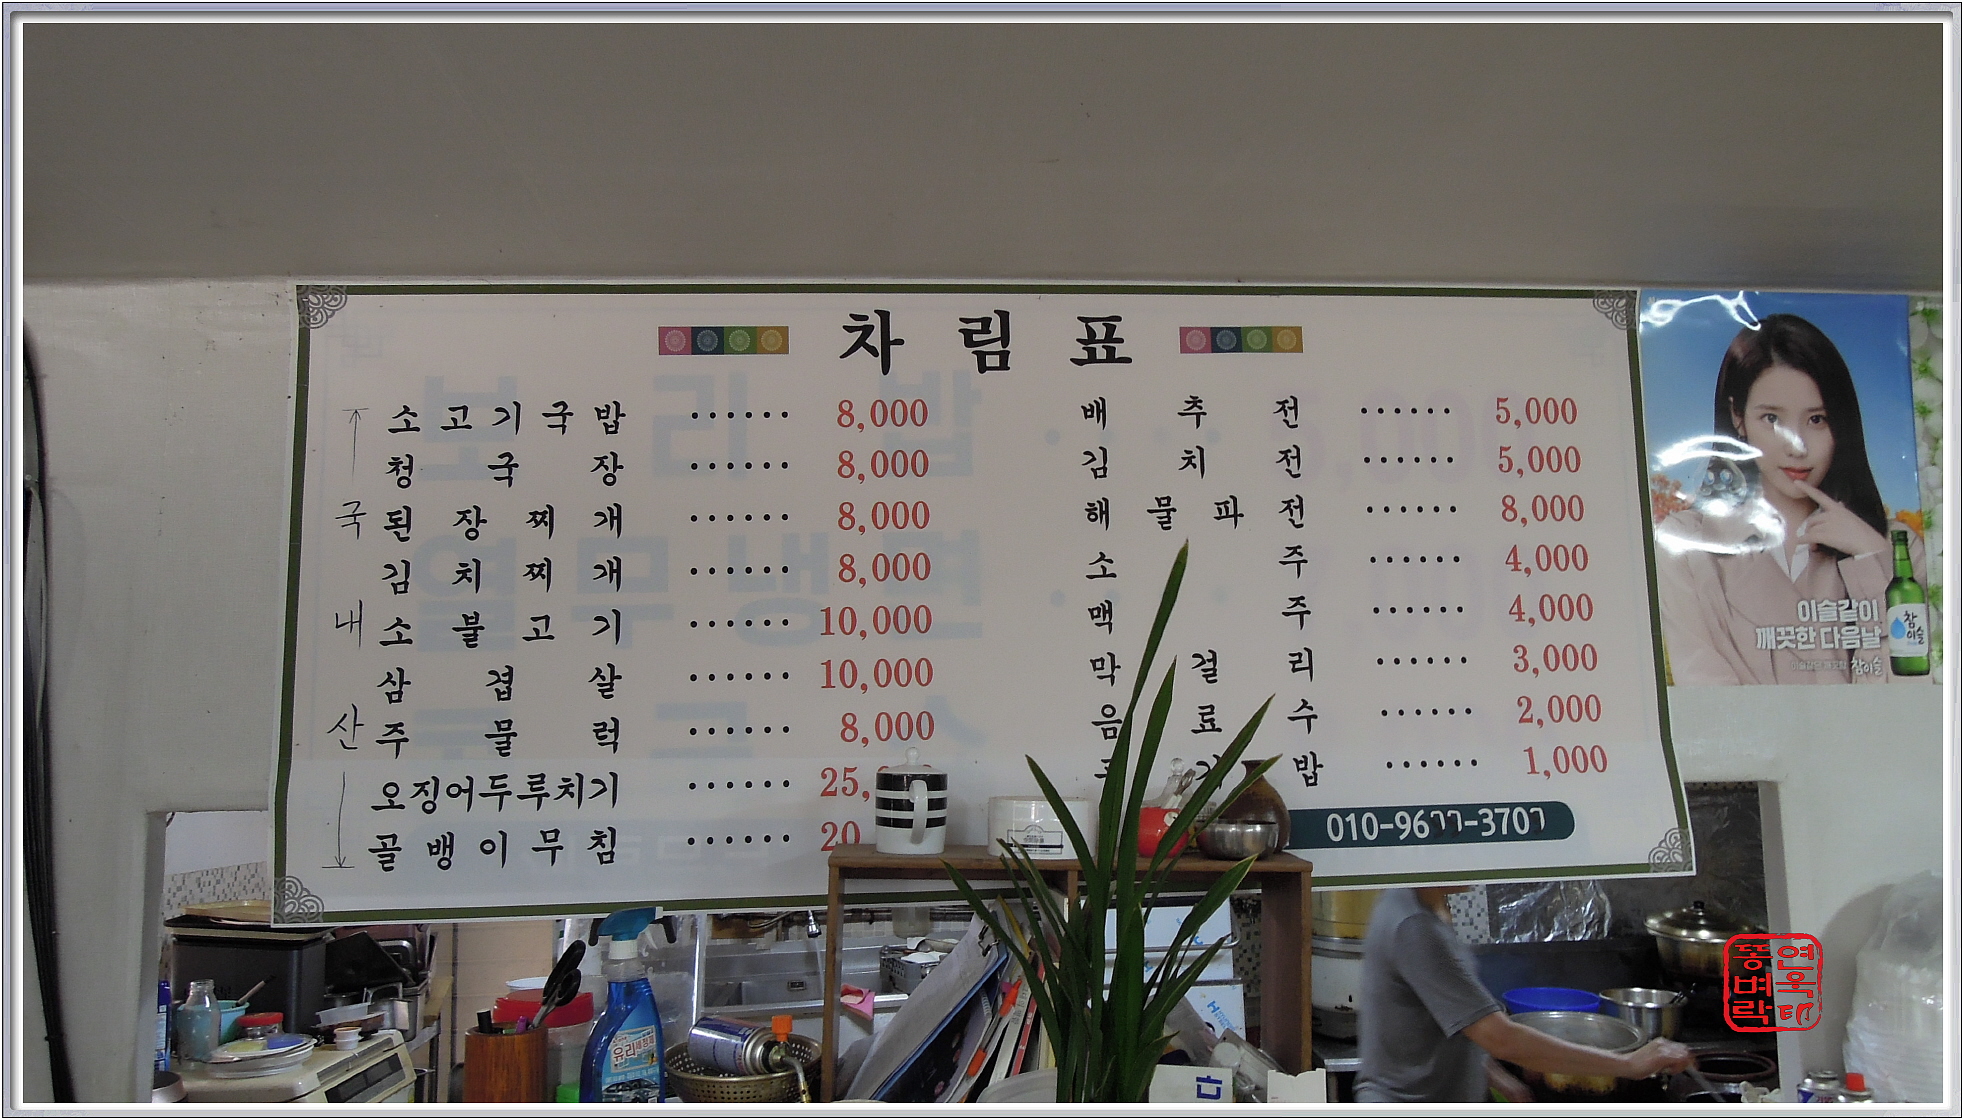 차림표
소고기국밥 ...... 8,000
청국장 ...... 8,000
된장찌개 ...... 8,000
김치찌개 ...... 8,000
소불고기 ...... 10,000
삼겹살 ...... 10,000
주물럭 ...... 8,000
오징어두루치기 ...... 25,
골뱅이무침 ...... 20
국내산
배추전 ...... 5,000
김치전 ...... 5,000
해물파전 ...... 8,000
소주 ...... 4,000
맥주 ...... 4,000
막걸리 ...... 3,000
음료수 ...... 2,000
밥 ...... 1,000
010-9677-3707
이슬같이
깨끗한 다음날
참이슬
참
이슬
유리